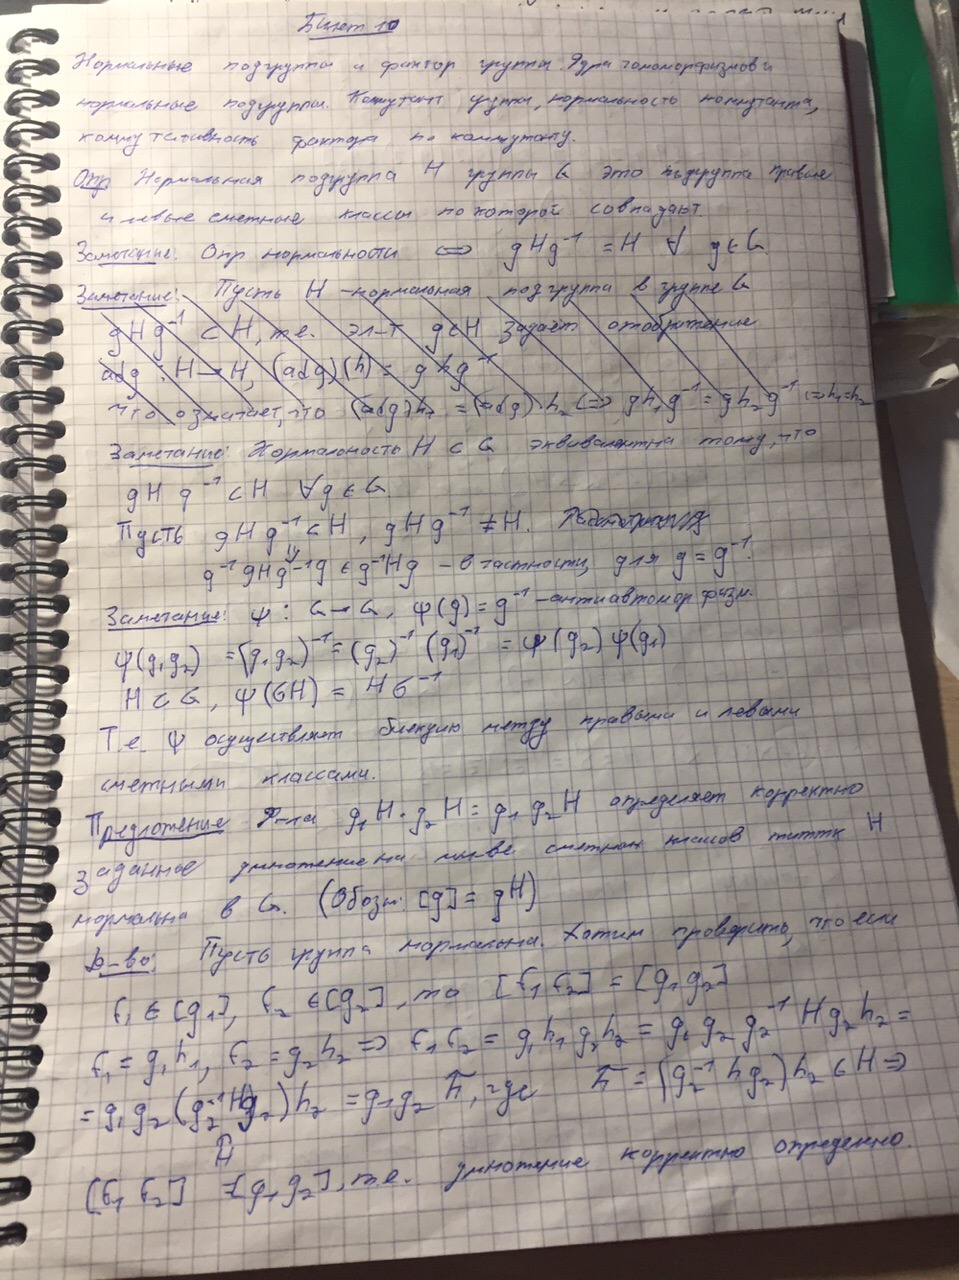 Билет 10
Нормальные подгруппы и фактор группы. Ядра гомоморфизмов и
нормальные подгруппы. Коммутант группы, нормальность коммутанта,
коммутативность фактора по коммутанту.
Опр Нормальная подгруппа H группы G это подгруппа правые
и левые смежные классы по которой совпадают.
Замечание: Опр нормальности ⇔ gHg⁻¹ = H ∀ g∈G.
Замечание: Пусть H - нормальная подгруппа в группе G
gHg⁻¹ ⊂ H, т.е. эл-т g∈H задаёт отображение
adg : H→H, (adg)(h) = ghg⁻¹
что означает, что (adg)h₁ = (adg)h₂ ⇔ gh₁g⁻¹ = gh₂g⁻¹ ⇔ h₁=h₂
Замечание: Нормальность H ⊂ G эквивалентна тому, что
gHg⁻¹ ⊂ H ∀g∈G
Пусть gHg⁻¹ ⊂ H, gHg⁻¹ ≠ H.
g⁻¹gHg⁻¹g ∈ g⁻¹Hg - в частности, для g = g⁻¹.
Замечание: ψ : G→G, ψ(g) = g⁻¹ - антиавтоморфизм.
ψ(g₁g₂) = (g₁g₂)⁻¹ = (g₂)⁻¹ (g₁)⁻¹ = ψ(g₂)ψ(g₁)
H ⊂ G, ψ(σH) = Hσ⁻¹
Т.е. ψ осуществляет биекцию между правыми и левыми
смежными классами.
Предложение Ф-ла g₁H · g₂H = g₁g₂H определяет корректно
заданное умножение на мн-ве смежных классов титтк H
нормальна в G. (Обозн: [g] = gH)
Д-во: Пусть группа нормальна. Хотим проверить, что если
f₁ ∈ [g₁], f₂ ∈ [g₂], то [f₁f₂] = [g₁g₂]
f₁ = g₁h₁, f₂ = g₂h₂ ⇒ f₁f₂ = g₁h₁g₂h₂ = g₁g₂g₂⁻¹Hg₂h₂ =
= g₁g₂(g₂⁻¹Hg₂)h₂ = g₁g₂h̄, где h̄ = (g₂⁻¹hg₂)h₂ ∈ H ⇒
H
[f₁f₂] = [g₁g₂], т.е. умножение корректно определено.